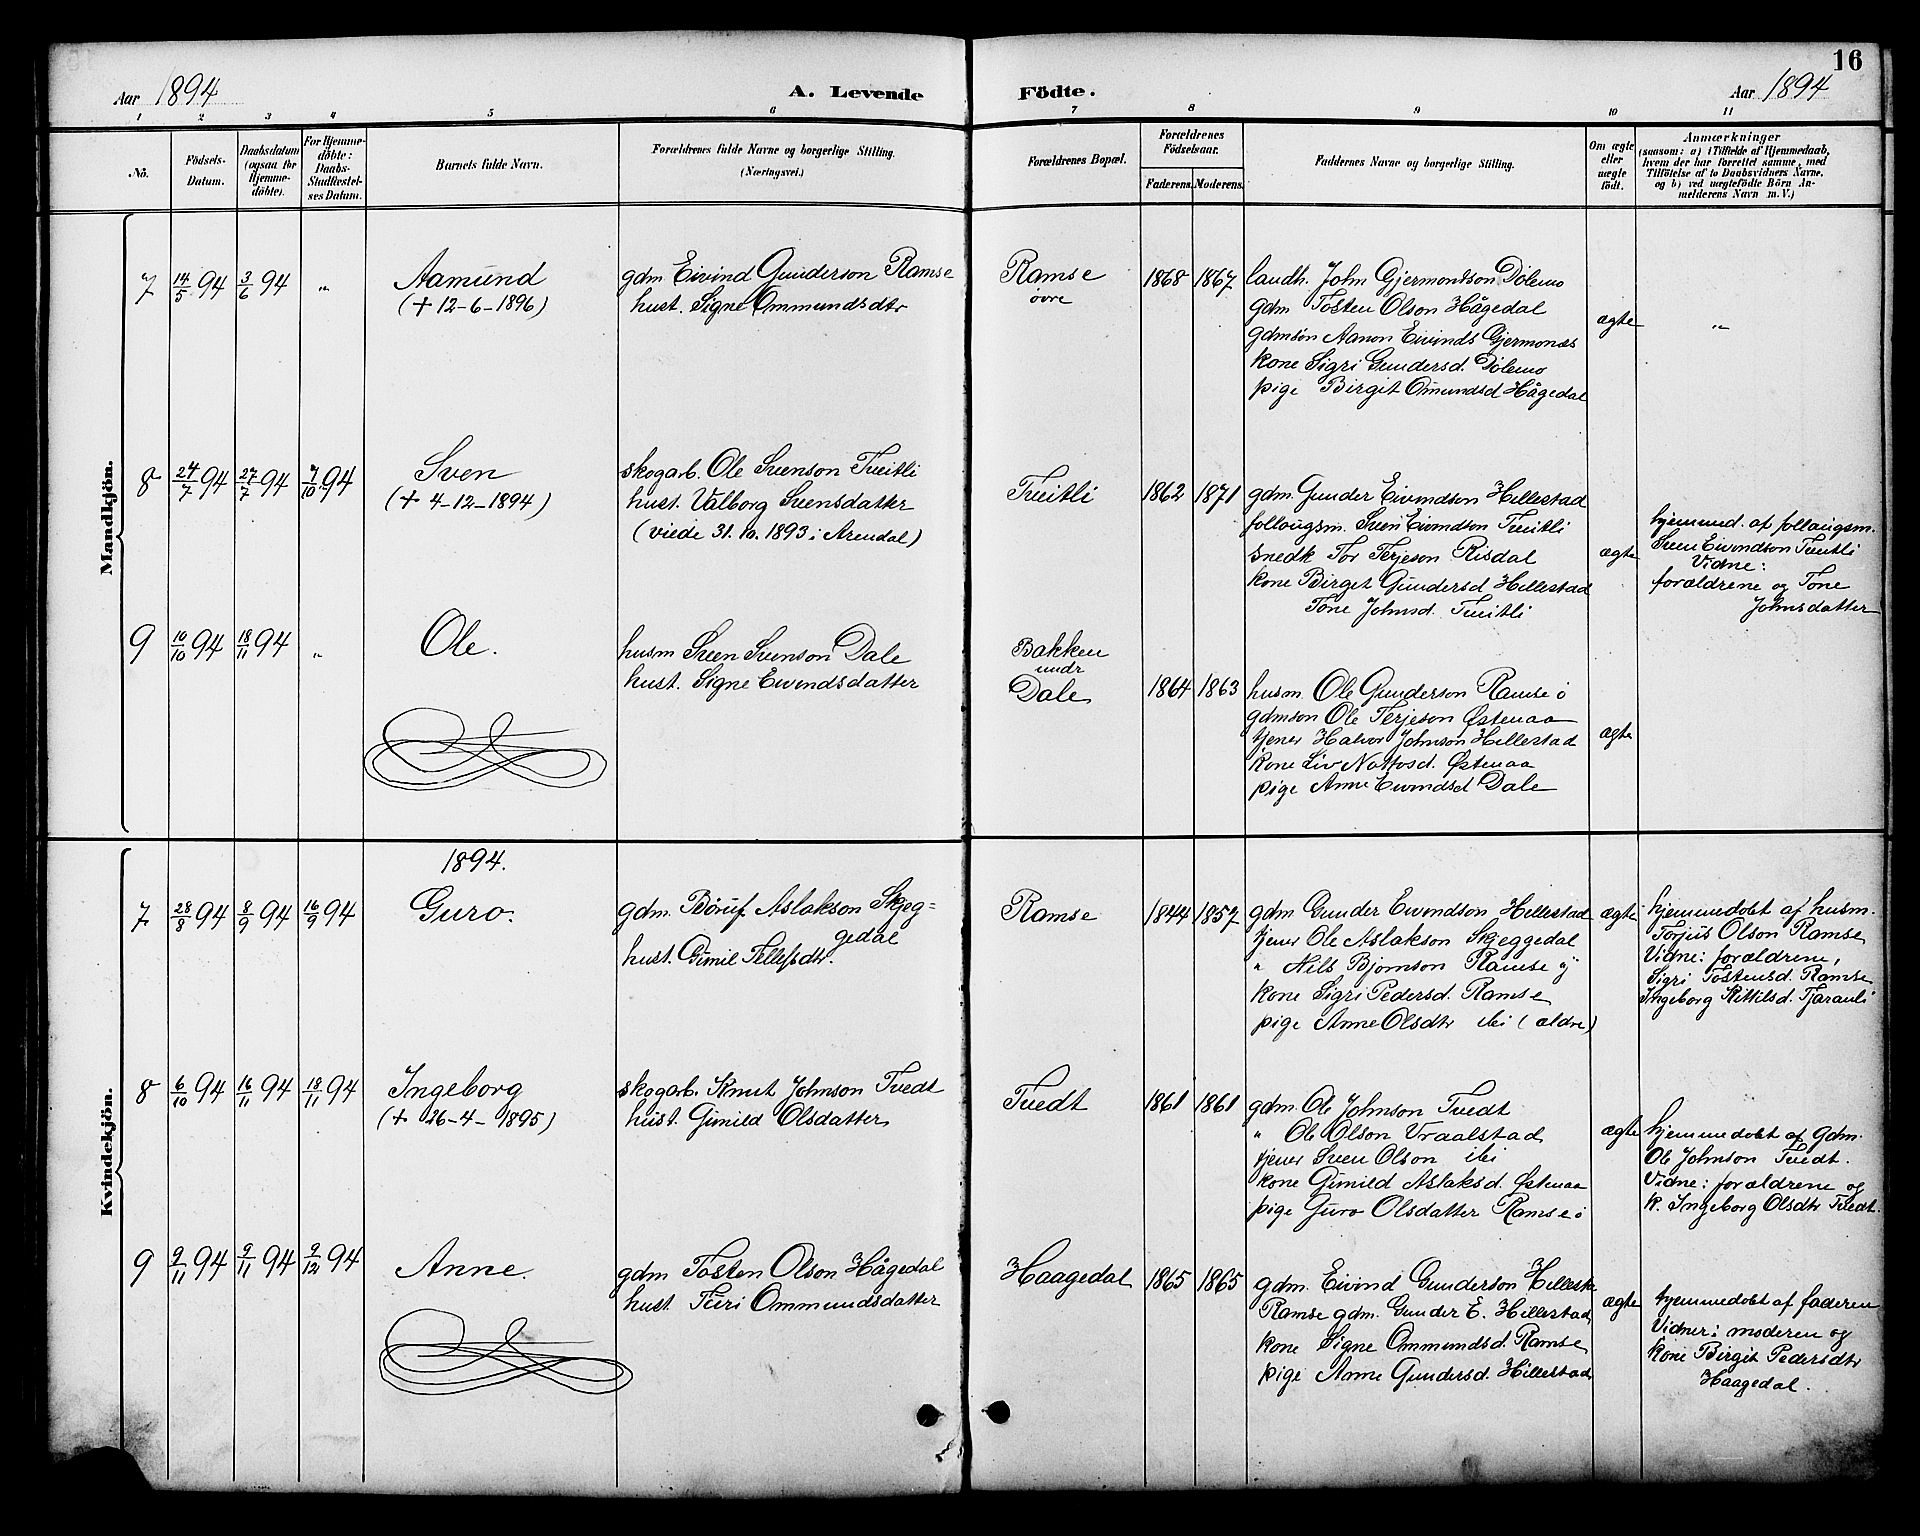 16
Aar 1894
A. Levende Födte.
Aar 1894
1 2 3 4 5 6 7 8 9 10 11
No.
Födsels-Datum.
Daabsdatum (ogsaa for Hjemme-döbte).
For Hjemme-döbte: Daabs-Stadfæstel-ses Datum.
Barnets fulde Navn.
Forældrenes fulde Navne og borgerlige Stilling. (Næringsvei.)
Forældrenes Bopæl.
Forældrenes Födselsaar.
Faderens. Moderens.
Faddernes Navne og borgerlige Stilling.
Om ægte eller uægte födt.
Anmærkninger
(saasom: a) i Tilfælde af Hjemmedaab,
hvem der har forrettet samme, med
Tilföielse af to Daabsvidners Navne,
og b) ved uægtefödte Börn An-
melderens Navn m.V.)
Mandkjön.
7 14/5 94 3/6 94 "
Aamund
(+ 12-6-1896)
gdm Eivind Gunderson Ramse
hust. Signe Ommundsdtr
Ramse
övre
1868 1867
landh. John Gjermondson Dölemo
gdm Tosten Olson Hågedal
gdmsön Aanon Eivinds Gjermonæs
kone Sigri Gundersd. Dölemo
pige Birgit Omundsd Hågedal
ægte
"
8 24/7 94 27/7 94 7/10 94
Sven
(+ 4-12-1894)
skogarb. Ole Svenson Tveitli
hust. Valborg Svensdatter
(viede 31.10.1893 i Arendal)
Tveitli
1862 1871
gdm. Gunder Eivindson Hillestad
follaugsm. Sven Eivindson Tveitli
snedk Tor Terjeson Risdal
kone Birget Gundersd Hillestad
Tone Johnsd. Tveitli
ægte
hjemmed. af follaugsm.
Sven Eivindson Tveitli
Vidne:
forældrene og Tone
Johnsdatter
9 10/10 94 18/11 94 "
Ole.
husm Sven Svenson Dale
hust. Signe Eivindsdatter
Bakken
undr
Dale
1864 1863
husm. Ole Gunderson Ramse ö
gdmson Ole Terjeson Østenaa
tjener Halvor Johnson Hillestad
kone Liv Nottosd. Østenaa
pige Anne Eivindsd Dale
ægte
Kvindekjön.
1894.
7 28/8 94 8/9 94 16/9 94
Guro.
gdm. Böruf Aslakson Skjeg=
gedal
hust. Gunil Tellefsdtr.
Ramse
1844 1857
gdm Gunder Eivindson Hillestad
tjener Ole Aslakson Skjeggedal
" Nils Bjornson Ramse y
kone Sigri Pedersd. Ramse
pige Anne Olsdtr ibi (ældre)
ægte
hjemmedobt af husm.
Torjus Olson Ramse
Vidne: forældrene,
Sigri Tostensd. Ramse
Ingeborg Kittilsd. Tjaranli
8 6/10 94 16/11 94 18/11 94
Ingeborg
(+ 26-4-1895)
skogarb. Knut Johnson Tvedt
hust. Gunild Olsdatter
Tvedt
1861 1861
gdm. Ole Johnson Tvedt
" Ole Olson Vraalstad
tjener Sven Olson ibi
kone Gunild Aslaksd. Østenaa
pige Guro Olsdatter Ramse ö
ægte
hjemmedobt af gdm.
Ole Johnson Tvedt.
Vidne: forældrene og
k. Ingeborg Olsdtr Tvedt.
9 9/11 94 9/11 94 9/12 94
Anne.
gdm Tosten Olson Hågedal
hust. Turi Ommundsdatter
Haagedal
1865 1865
gdm. Eivind Gunderson
Ramse gdm. Gunder E. Hillestad
kone Signe Ommundsd. Ramse
pige Anne Gundersd. Hillestad
ægte
hjemmedobt af faderen
Vidner: moderen og
kone Birgit Pedersdtr
Haagedal.